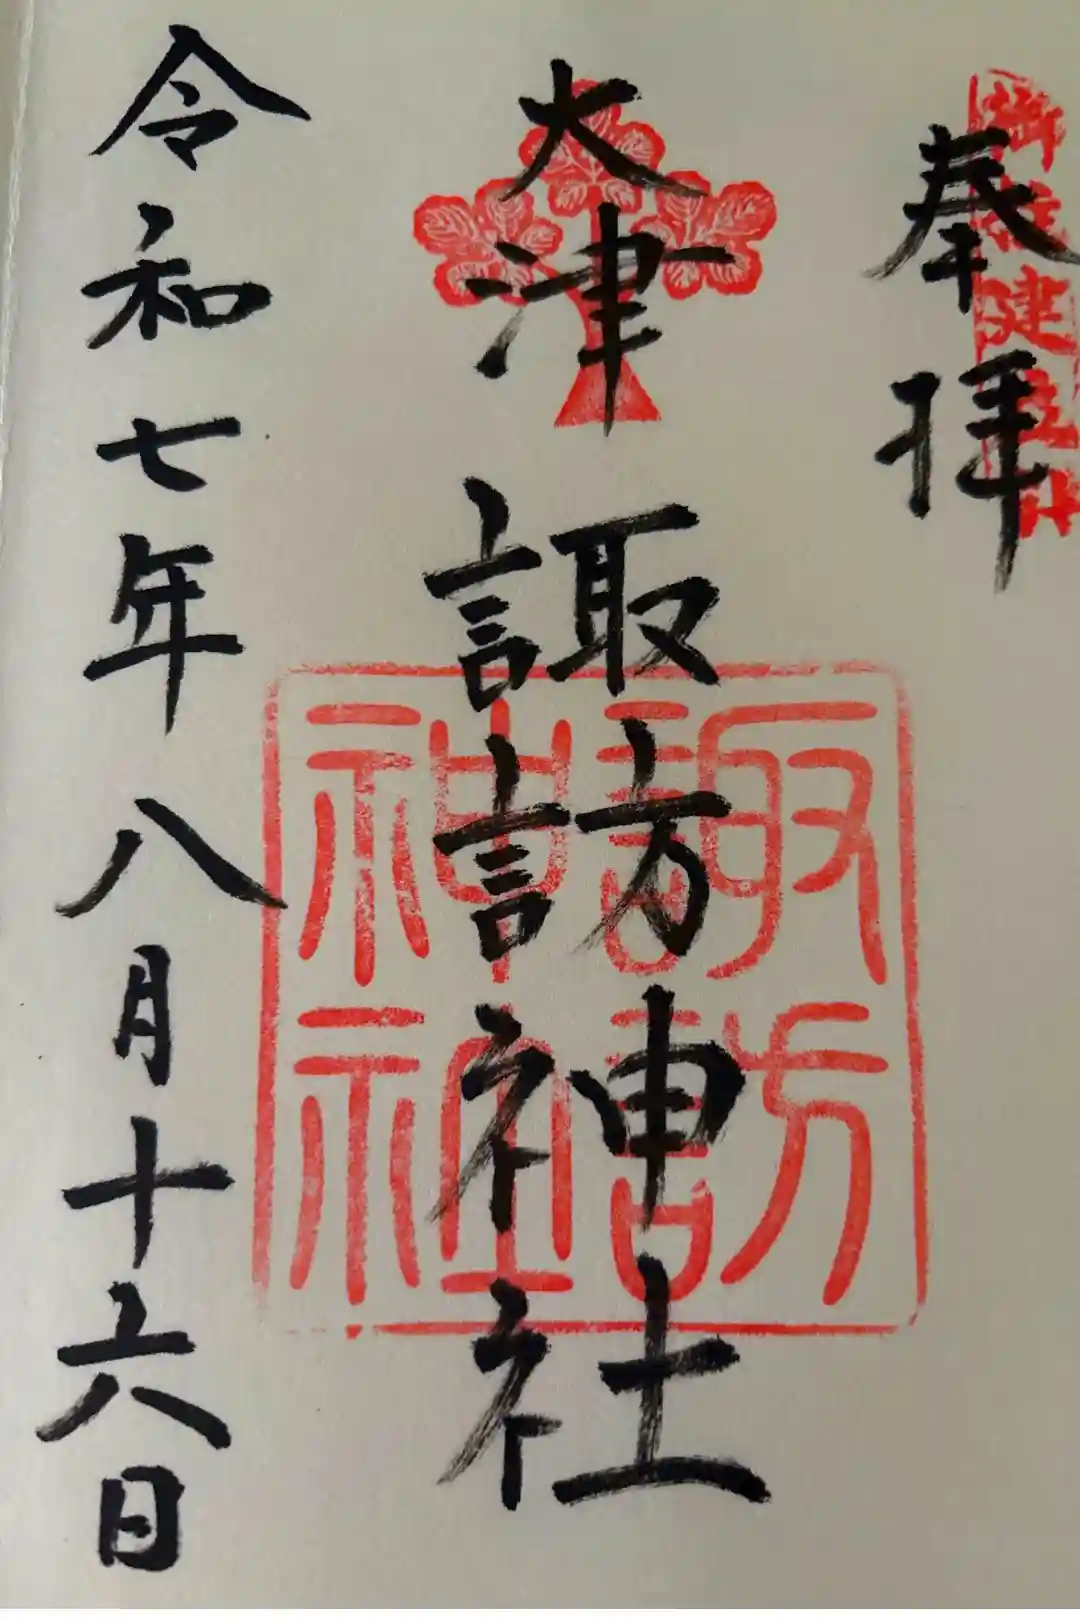 奉拝
大津諏訪神社
諏訪神社
令和七年八月十六日